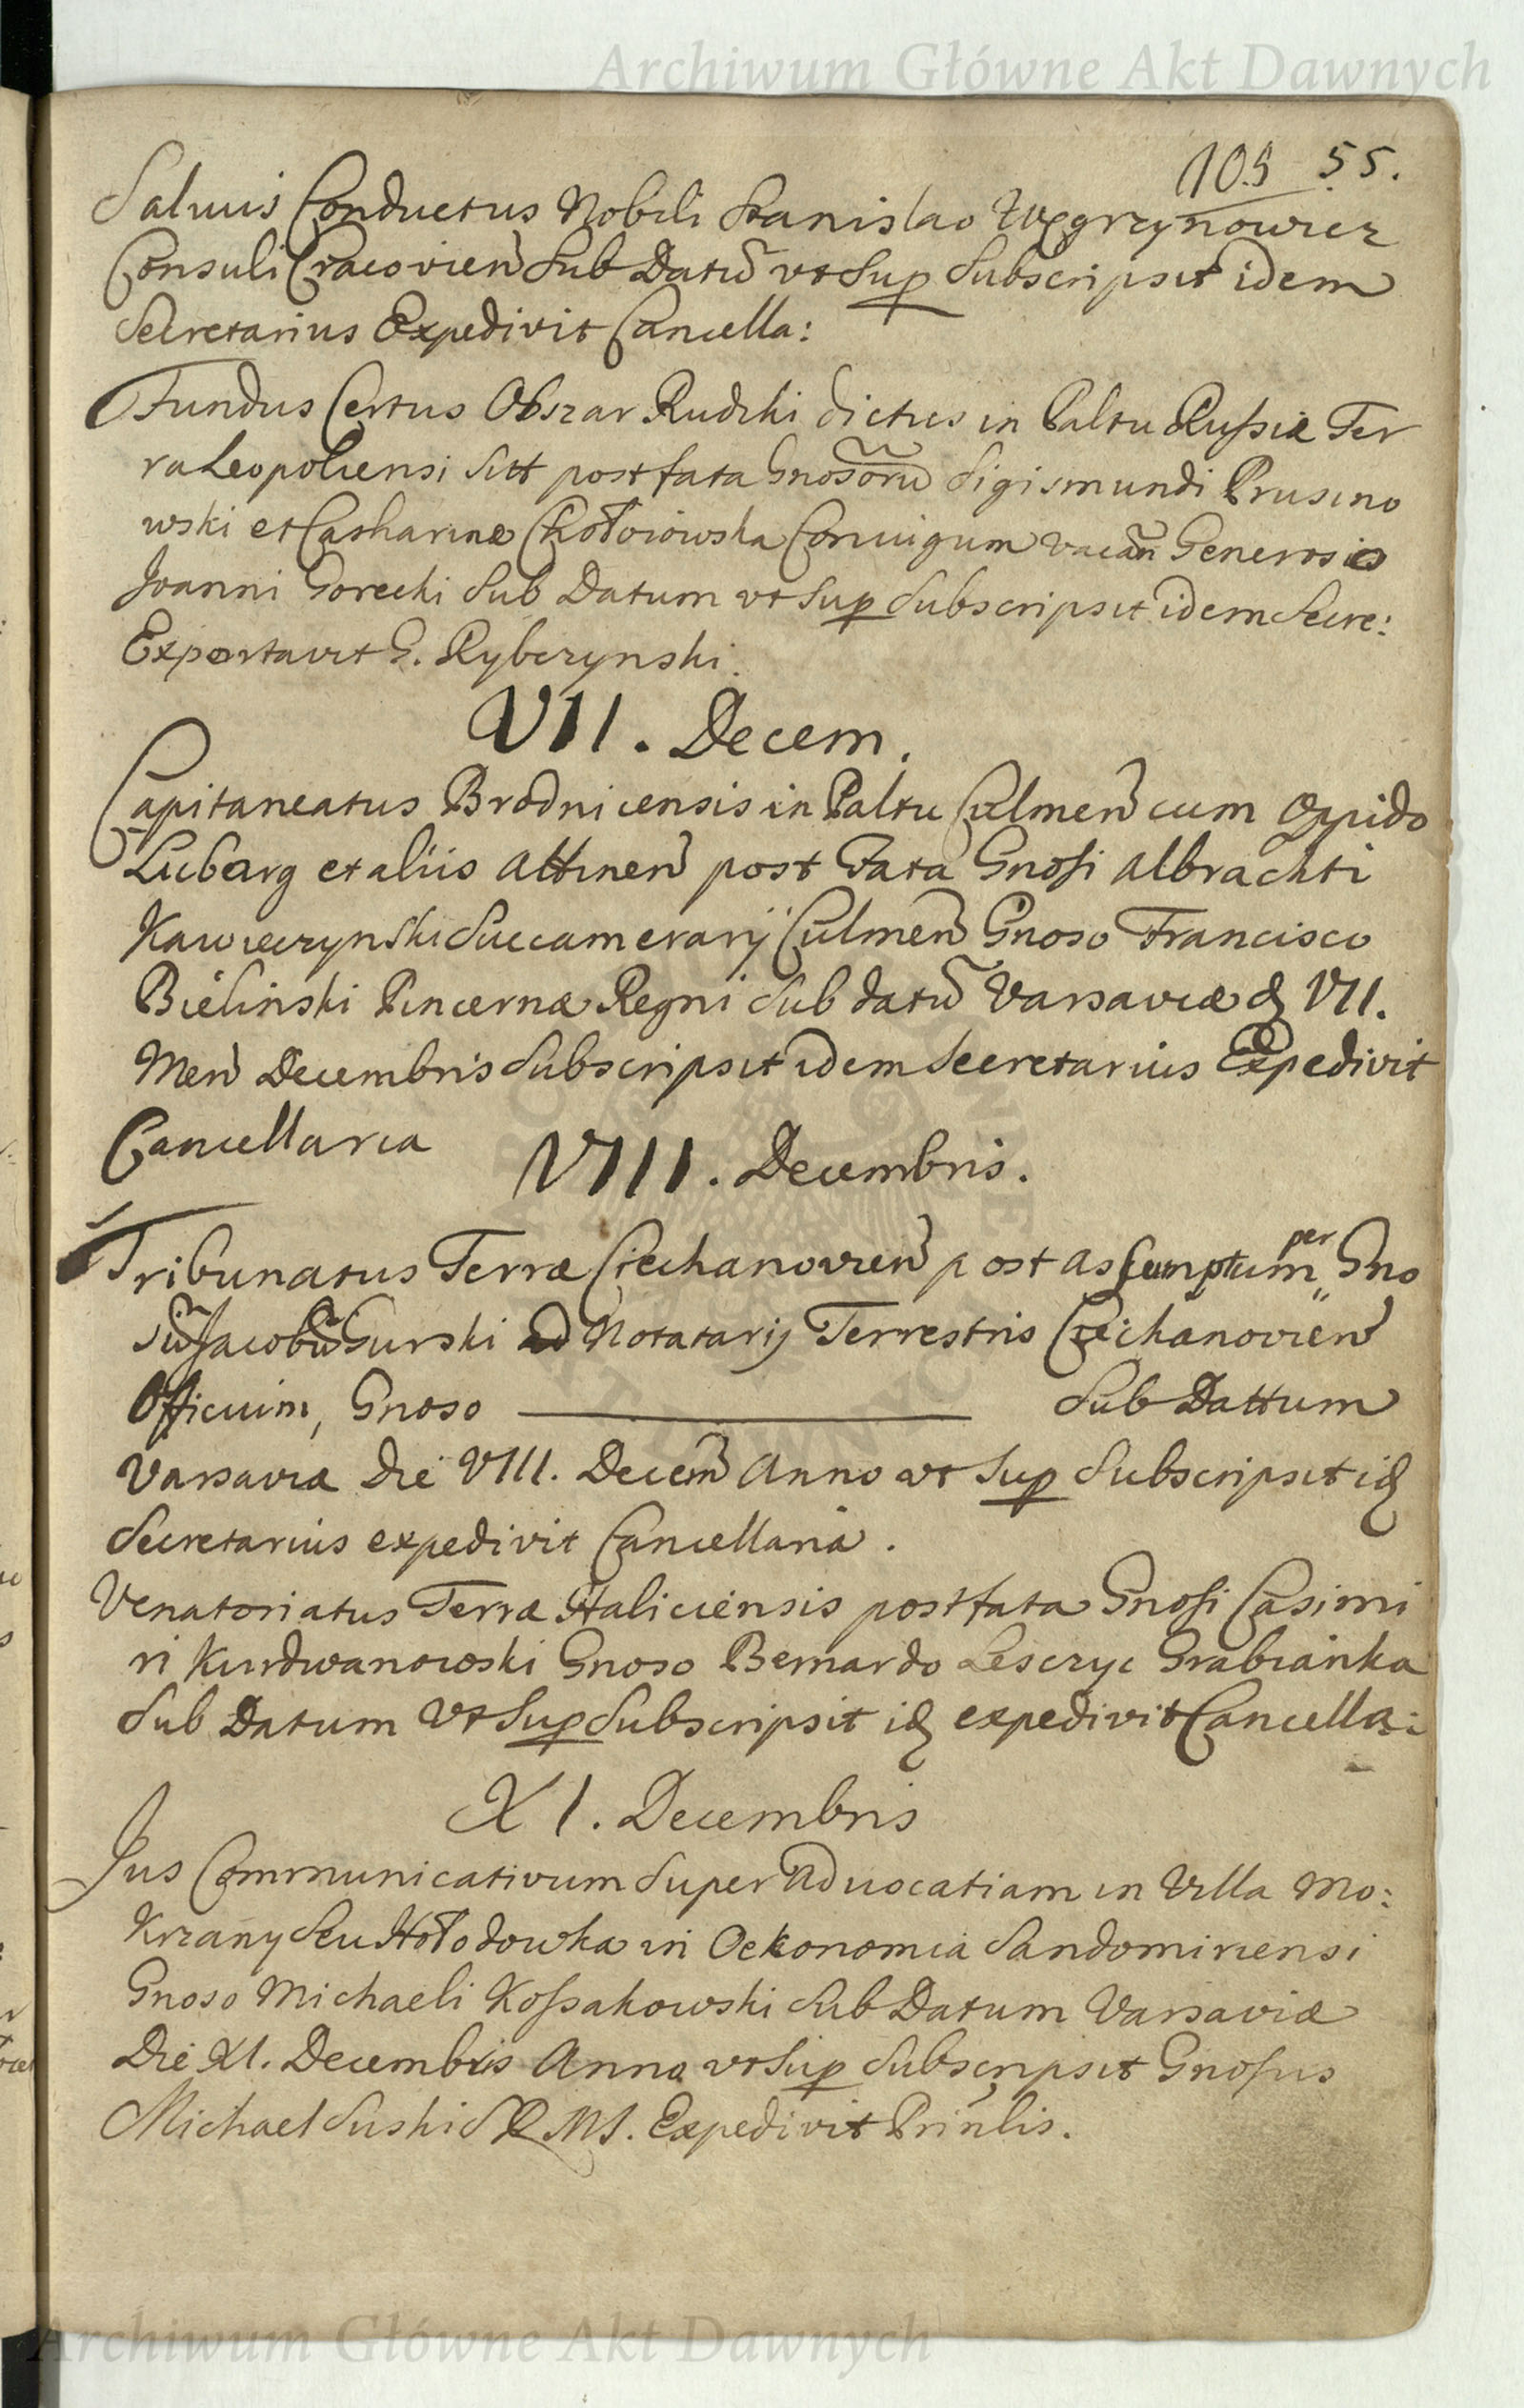 Archiwum Główne Akt Dawnych
105 55.
Salvus Conductus Nobili Stanislao Węgrzynowicz
Consuli Cracovien Sub Datũ vt Sup Subscripsit idem
Secretarius Expedivit Cancella:
Fundus Certus Obszar Rudzki dictus in Paltu Russiæ Ter
ra Leopoliensi Sitt post fata Gnosorũ Sigismundi Prusino
wski et Catharinæ Coniugum vacañ Generoso
Joanni Gorecki Sub Datum vt Sup Subscripsit idem Secre:
Exportavit G. Rybczynski.
VII. Decem.
Capitaneatus Brodnicensis in Paltu Culmen cum Oppido
Lubarg et aliis attinen post Fata Gnosi Albrachti
Kawieczynski Succamerarij Culmen Gnoso Francisco
Bielinski Pincernæ Regni Sub datũ Varsaviæ d VII.
Men Decembris Subscripsit idem Secretarius Expedivit
Cancellaria
VIII. Decembris.
Tribunatus Terræ Ciechanovien post assumptum per Gno
sũ Jacobũ Gurski ad Notatarij Terrestris Ciechanovien
Officium, Gnoso Sub Dattum
Varsaviæ Die VIII. Decem Anno vt Sup Subscripsit id
Secretarius expedivit Cancellaria.
Venatoriatus Terræ Haliciensis post fata Gnosi Casimi
ri Kurdwanowski Gnoso Bernardo Lesczyc Grabianka
Sub Datum Vt Sup Subscripsit id expedivit Cancella:
XI. Decembris
Jus Communicativum Super Advocatiam in Villa Mo:
Krzany Seu Hołodowka in Oekonomia Sandomiriensi
Gnoso Michaeli Kossakowski Sub Datum Varsaviæ
Die XI. Decembris Anno vt Sup Subscripsit Gnosus
Michael Suski S R MS. Expedivit Prinlis.
Archiwum Główne Akt Dawnych